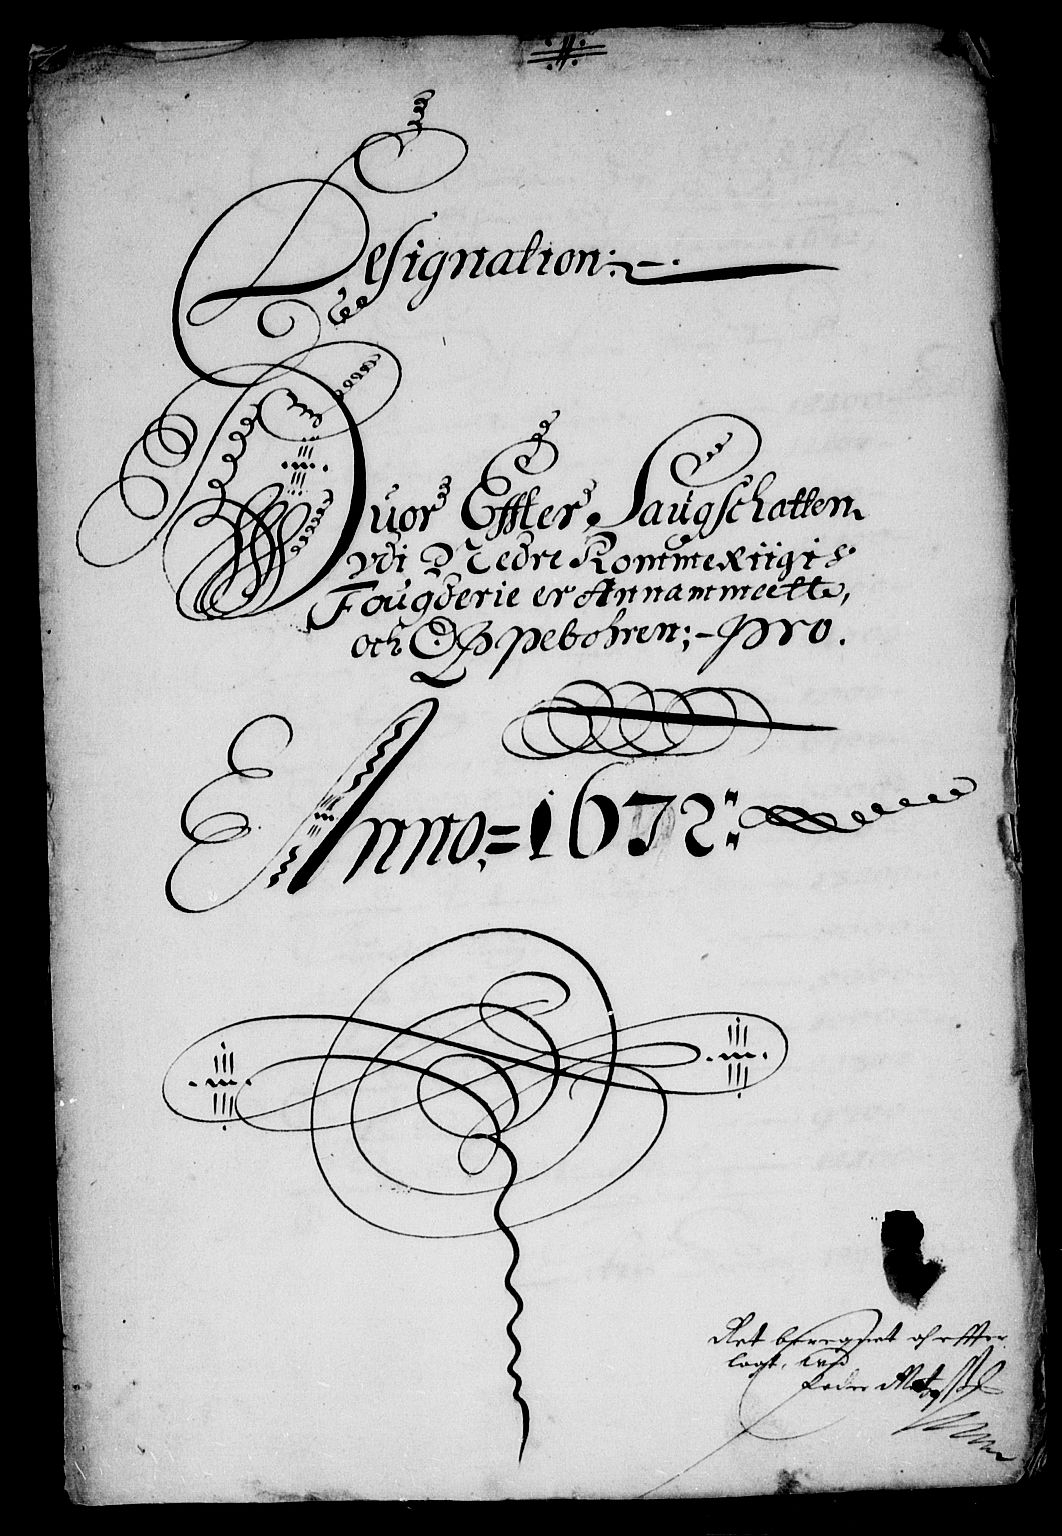 Designation:
Huor Effter Saugschatten
vdi Nedre Rommeriigis
Fougderie er Annammeette,
och Oppebohren;- pro.
Anno,=1672:
Ret beregnet och effter
lagt,
Peder